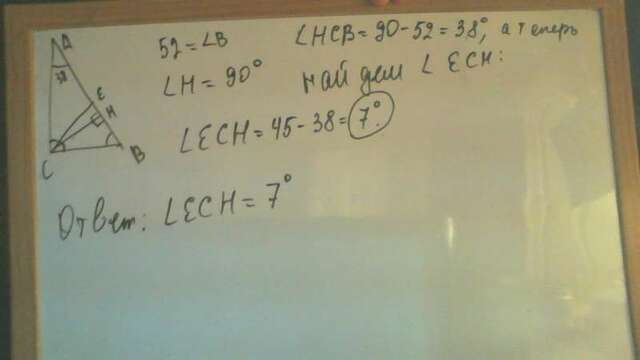 52=∠B ∠HCB=90-52=38°, а теперь
∠H=90° найдем ∠ECH:
∠ECH=45-38=7°.
Ответ: ∠ECH=7°
E
H
C
B